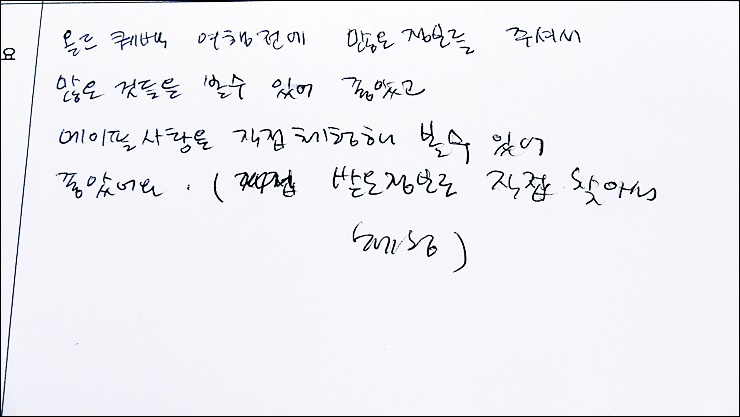 요
올드 퀘벡 여행전에 많은 정보를 주셔서
많은 것들을 볼수 있어 좋았고
메이플사탕을 직접체험해 볼수 있어
좋았어요. ( 받은정보로 직접 찾아서
체험)